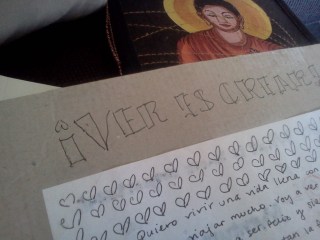 ¡VER ES CREAR!
Quiero vivir una vida llena con
viajar mucho. Voy a ver
ser feliz y